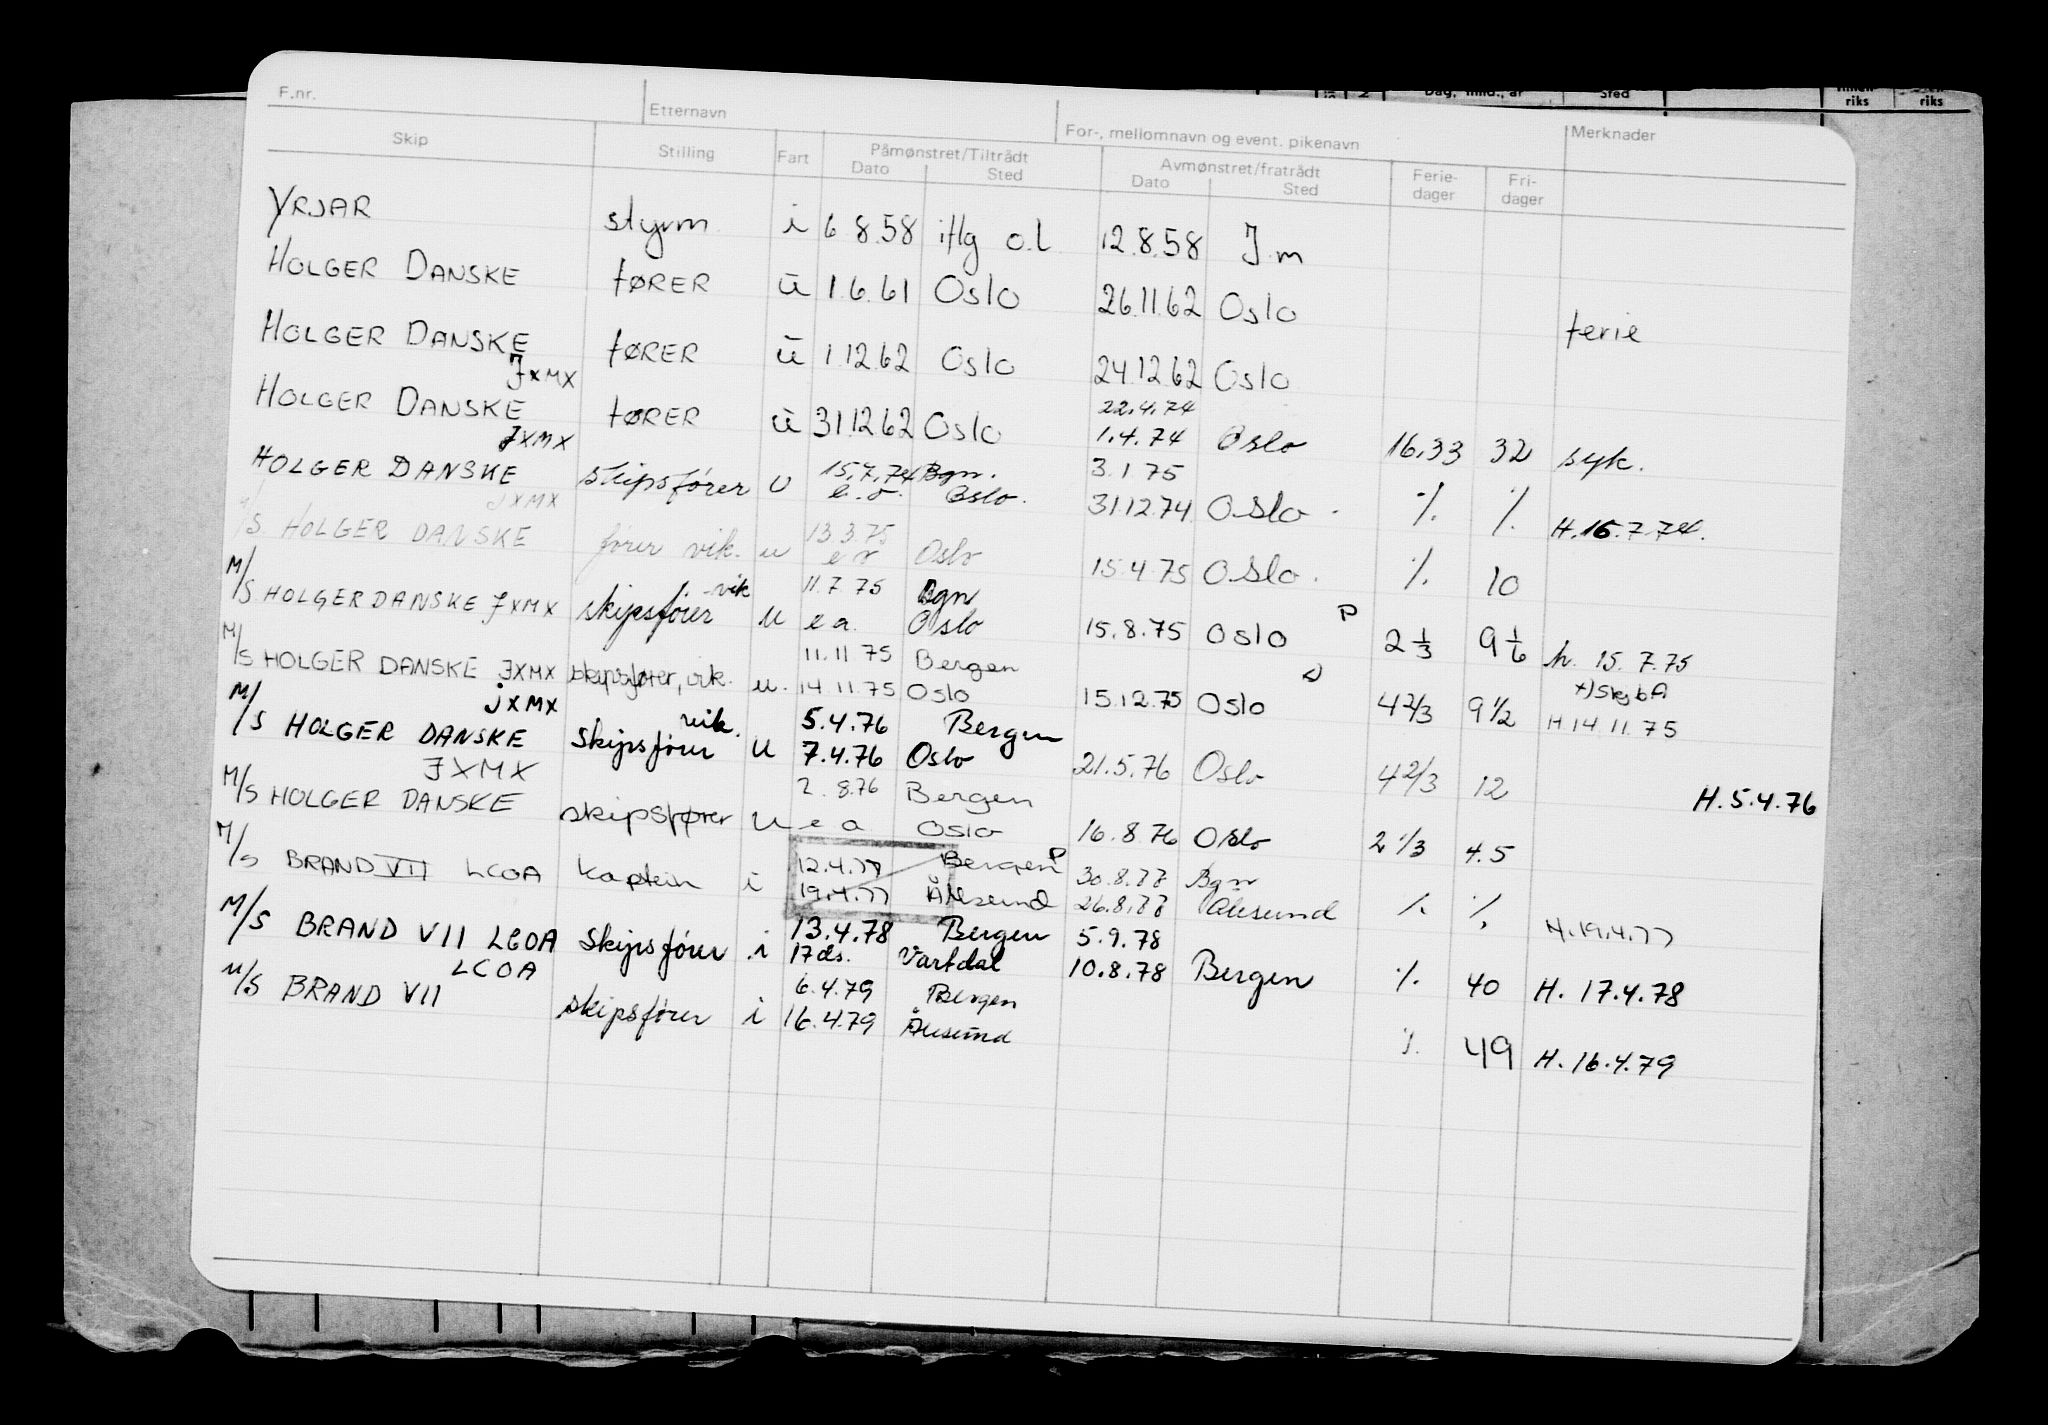 F.nr. Etternavn For-, mellomnavn og event. pikenavn Merknader
Skip Stilling Fart Påmønstret/Tiltrådt Avmønstret/fratrådt Ferie- Fri-
Dato Sted Dato Sted dager dager
Dag, mnd., år Sted riks riks
YRJAR styrm i 6 8.58 iflg o.l 12.8.58 J.m
HOLGER DANSKE fØRER u 1.6.61 Oslo 26.11.62 Oslo ferie
HOLGER DANSKE fØRER u 1.12.62 Oslo 24.12.62 Oslo
JXMX 22.4.74
HOLGER DANSKE fØRER u 31.12.62 Oslo 1.4.74 Oslo 16,33 32 syk.
JXMX 15.7.74 Bgn. 3.1 75
HOLGER DANSKE skipsfører u e.a. Oslo. 31.12.74 Oslo. ./. ./. H.16.7.74.
JXMX 13.3.75
M/S HOLGER DANSKE fører vik. u e a Oslo 15.4.75 Oslo. ./. 10
vik 11.7 75 Bgn
M/S HOLGER DANSKE JXMX skipsfører u e a. Oslo 15.8.75 Oslo P 2 1/3 9 1/6 h. 15. 7.75
11.11 75 Bergen
M/S HOLGER DANSKE JXMX skipsfører, vik. u. 14.11.75 Oslo 15.12.75 Oslo 4 2/3 9 1/2 H 14.11.75
JXMX vik. 5.4.76 Bergen
M/S HOLGER DANSKE Skipsfører u 7.4.76 Oslo 21.5.76 Oslo 4 2/3 12 H.5.4.76
JXMX 2.8.76 Bergen
M/S HOLGER DANSKE skipsfører u e a Oslo 16.8.76 Oslo 2 1/3 4.5
12.4.77 Bergen P 30.8.77 Bgn
M/S BRAND VII LCOA kaptein i 19.4.77 Ålesund 26.8.77 Ålesund ./. ./. H.19.4.77
13.4.78 Bergen 5.9.78
M/S BRAND VII LCOA Skipsfører i 17 ds. Vartdal 10.8.78 Bergen ./. 40 H. 17.4.78
LCOA 6.4.79 Bergen
M/S BRAND VII skipsfører i 16.4.79 Ålesund ./. 49 H. 16.4.79